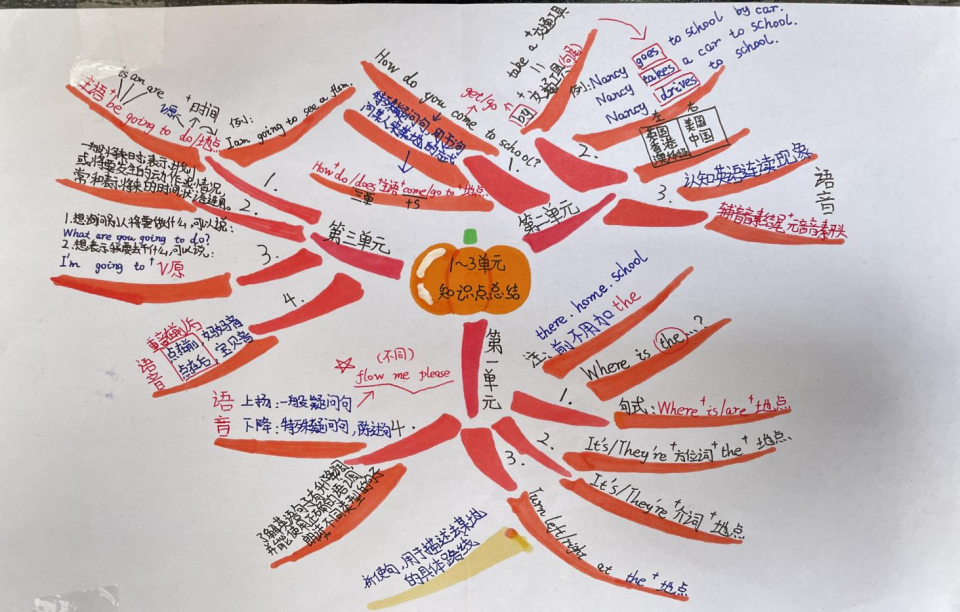 1~3单元
知识点总结
第一单元
1.
Where is the...?
注: there.home.school
前不用加the
句式:Where+is/are+地点
2.
It's/They're+方位词+the+地点.
It's/They're+介词+地点
3.
Turn left/right at the+地点
祈使句,用于描述去某地
的具体路线
4.
语音
上扬:一般疑问句
下降:特殊疑问句,陈述句
☆ flow me please
(不同)
正确的语调
第二单元
1.
How do you come to school?
特殊疑问句,用于询
问某人来某地的方式
How+do/does+主语+come/go to+地点.
三单
+s
get/go
by+交通工具
=
take a+交通工具
例:Nancy goes to school by car.
Nancy takes a car to school.
Nancy drives to school.
2.
左 右
英国 美国
香港 中国
3.
语音
认知英语连读现象
辅音音素结尾+元音音素开头
第三单元
1.
is an are
主语+be going to do/地点
V原
+时间
例:
I am going to see a film.
2.
一般将来时:表示计划
或将要发生的动作或情况,
常和表示将来的时间状语连用。
3.
1.想询问别人将要做什么,可以说:
What are you going to do?
2.想表示我要去干什么,可以说:
I'm going to+V原
4.
语音
重音前后
点在前 妈妈音
点在后 宝贝音